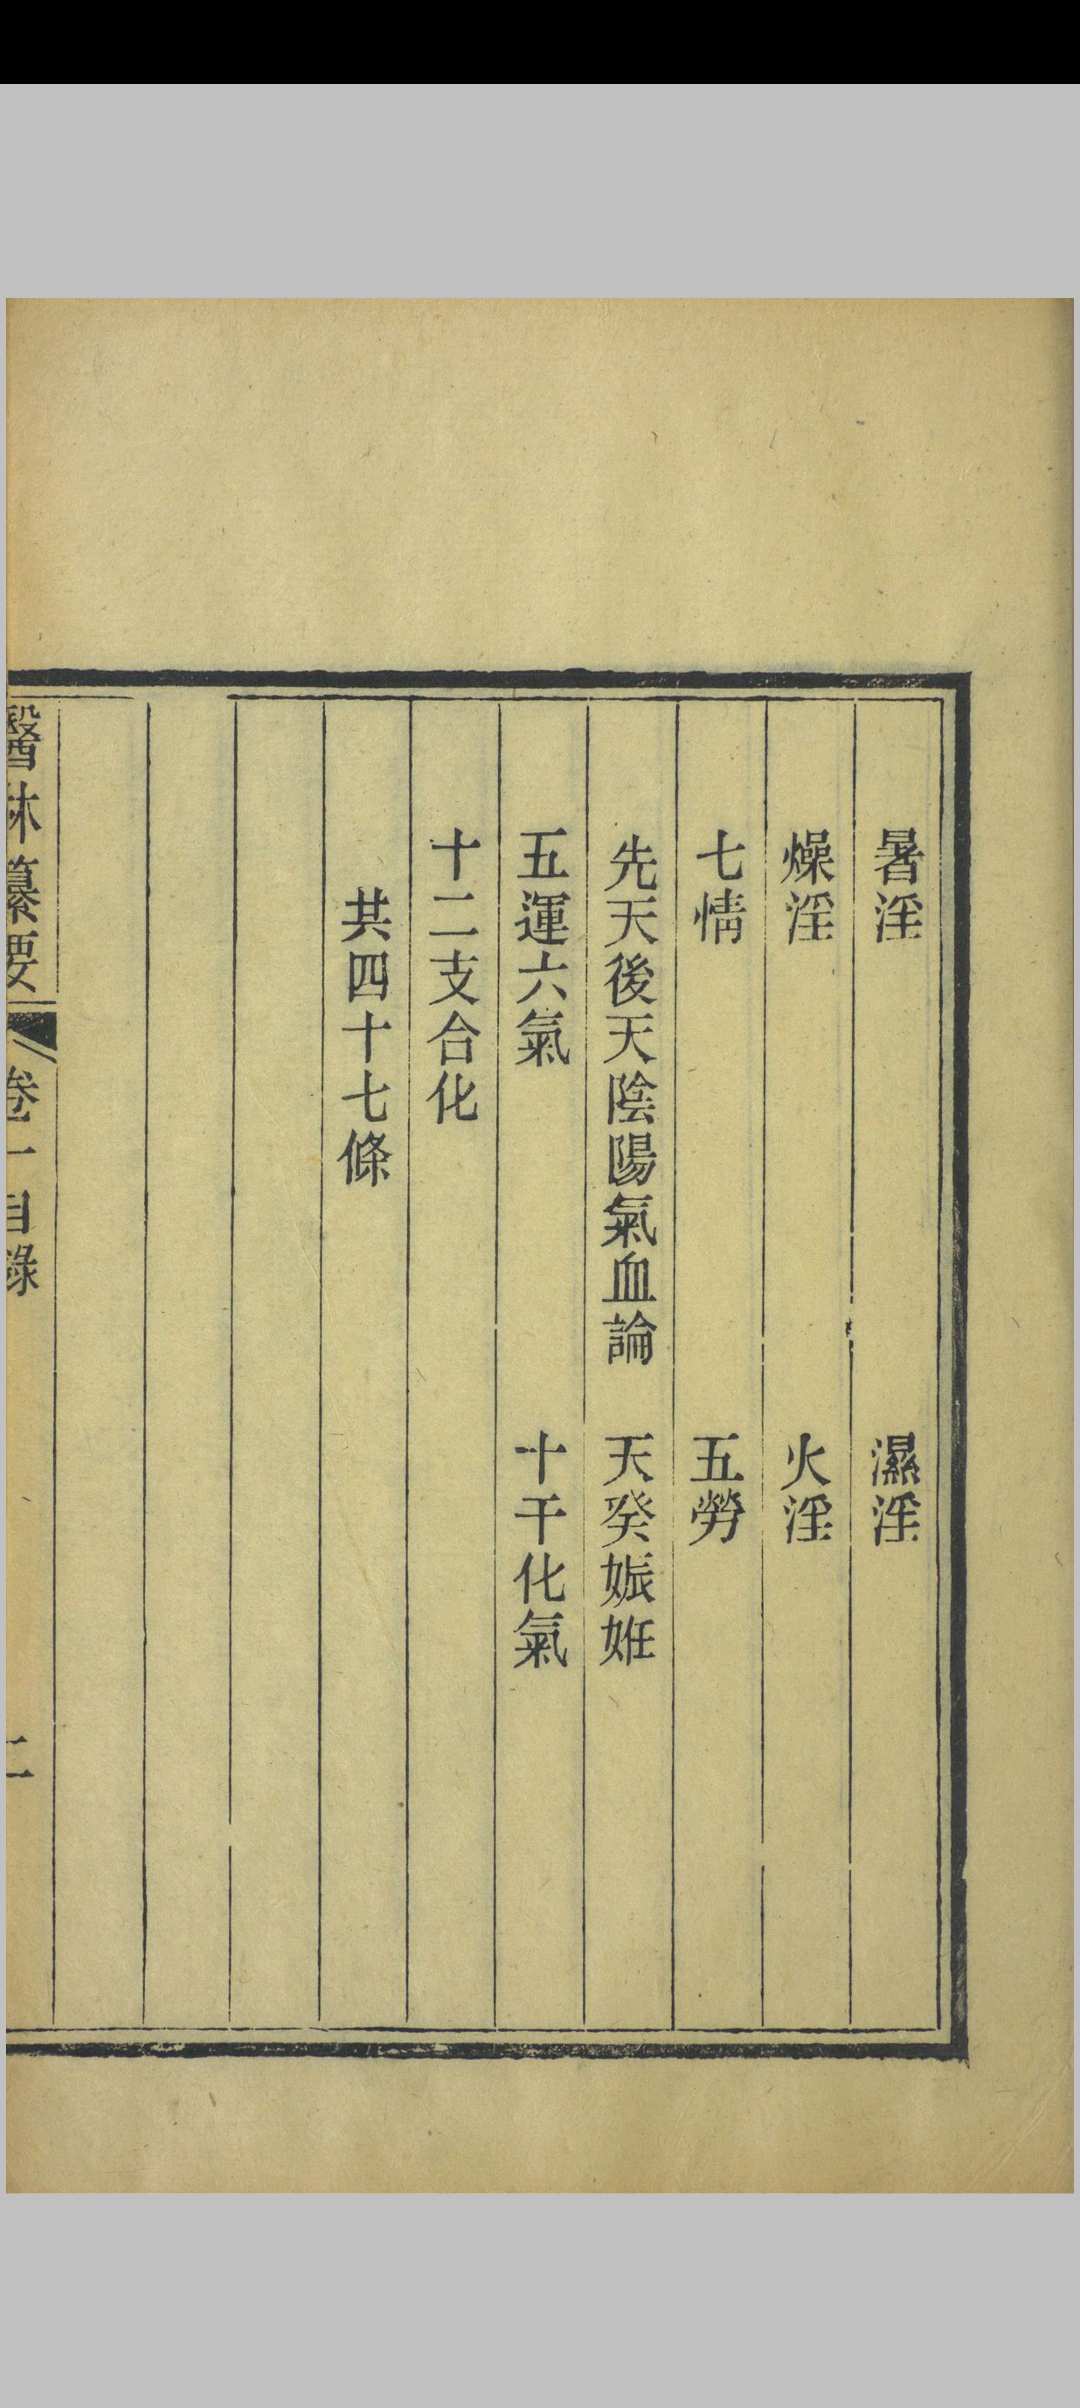 暑淫　濕淫
燥淫　火淫
七情　五勞
先天後天陰陽氣血論　天癸娠妊
五運六氣　十干化氣
十二支合化
共四十七條
醫林纂要　卷一目錄　二